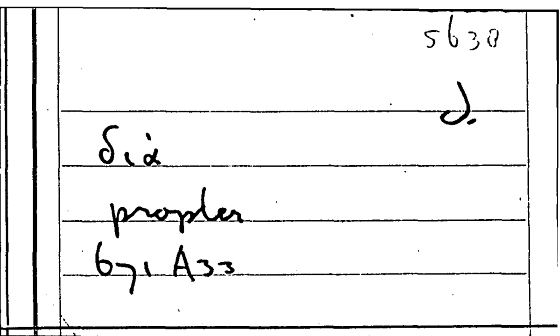 5630
δ.
διὰ
propter
671 A33